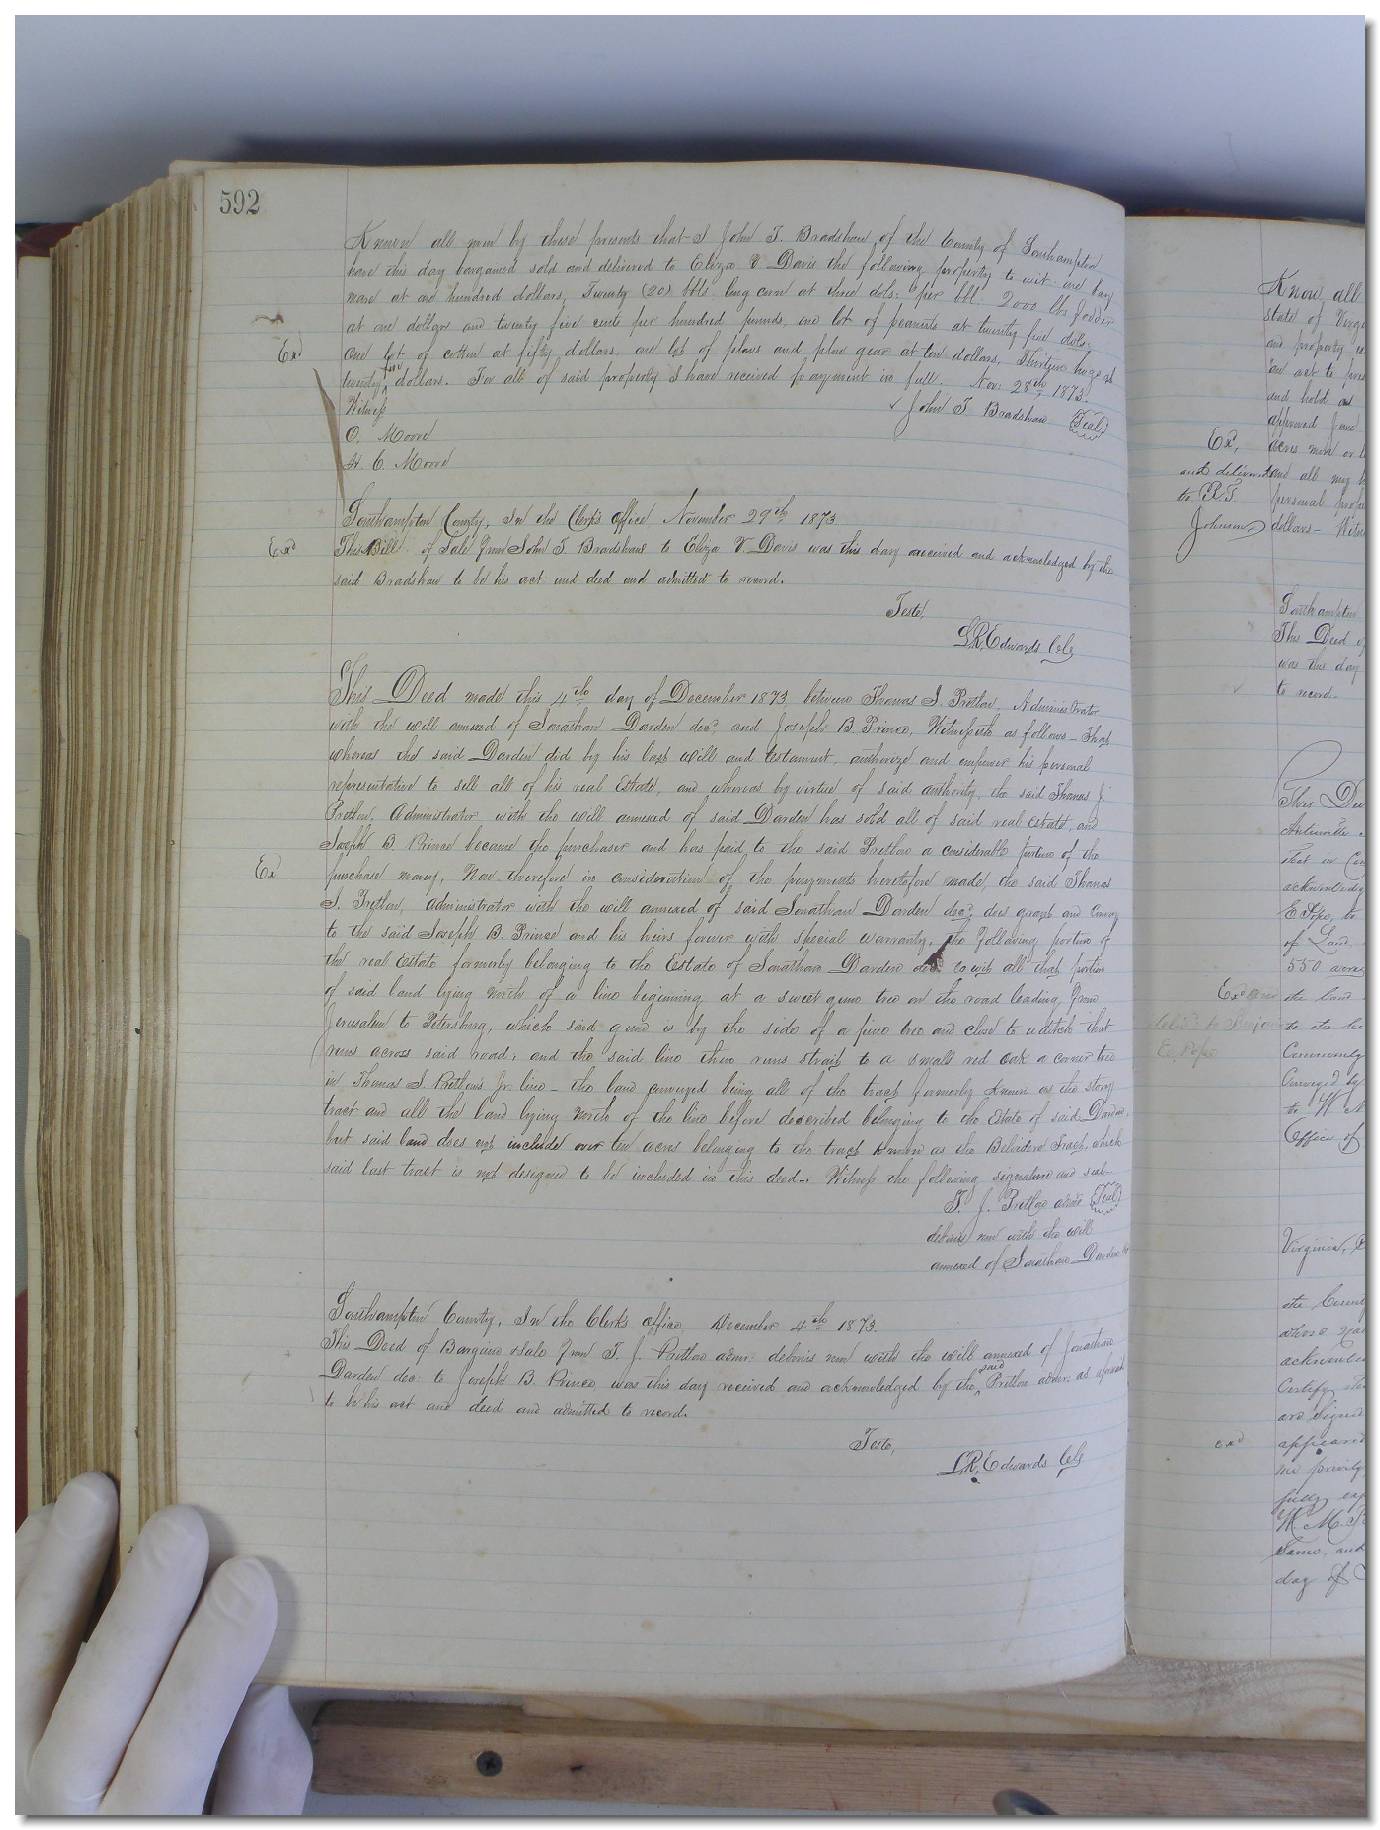 592
Know all men by these presents that I John T. Bradshaw of the County of Southampton
have this day bargained sold and delivered to Eliza V. Davis the following property to wit one bay
mare at one hundred dollars, Twenty (20) bbls. corn at three dols. per bbl. 2000 lbs fodder
at one dollar and twenty five cents per hundred pounds, one lot of peanuts at twenty five dols.
Exd
one lot of cotton at fifty dollars, one lot of plows and plow gear at ten dollars, Thirteen hogs at
twenty five dollars. For all of said property I have received payment in full. Nov: 28th 1873.
Witness
John T Bradshaw (Seal)
O. Moore
H. C. Moore
Southampton County, In the Clerk's office November 29th 1873
Exd
This Bill of Sale from John T. Bradshaw to Eliza V. Davis was this day received and acknowledged by the
said Bradshaw to be his act and deed and admitted to record.
Teste,
L.R. Edwards Clk
This Deed made this 4th day of December 1873, between Thomas J. Pretlow, Administrator
with the will annexed of Jonathan Darden decd and Joseph B. Prince, Witnesseth as follows - That
whereas the said Darden did by his last will and testament, authorize and empower his personal
representative to sell all of his real Estate, and whereas by virtue of said authority, the said Thomas J.
Pretlow, Administrator with the will annexed of said Darden has sold all of said real Estate, and
Joseph B. Prince became the purchaser and has paid to the said Pretlow a considerable portion of the
Ex
purchase money, Now therefore in consideration of the payments heretofore made, the said Thomas
J. Pretlow, administrator with the will annexed of said Jonathan Darden decd. does grant and convey
to the said Joseph B. Prince and his heirs forever with special warranty, the following portion of
the real Estate formerly belonging to the Estate of Jonathan Darden decd to wit, all that portion
of said land lying north of a line beginning at a sweet gum tree on the road leading from
Jerusalem to Petersburg, which said gum is by the side of a pine tree and close to a ditch that
runs across said road, and the said line then runs strait to a small red oak a corner tree
in Thomas J. Pretlow's Jr. line - the land conveyed being all of the tract formerly known as the story
tract and all the land lying north of the line before described belonging to the Estate of said Darden,
but said land does not include over ten acres belonging to the tract known as the Belvidere Tract, which
said last tract is not designed to be included in this deed. Witness the following signature and seal
T. J. Pretlow admr (Seal)
debonis non with the will
annexed of Jonathan Darden
Southampton County, In the Clerk's office, December 4th 1873.
This Deed of Bargain & Sale from T. J. Pretlow admr. debonis non with the will annexed of Jonathan
Darden dec. to Joseph B. Prince, was this day received and acknowledged by the said Pretlow admr. as aforesaid
to be his act and deed and admitted to record.
Teste,
L.R. Edwards Clk
Know all
state of Virg
and property
an act to
and hold
approved June
Ex,
acres more or
and delivered
and all my
to R.T.
personal prop
Johnson
dollars - Witn
Southampton
This Deed of
was this day
to record.
This Dee
acknowledg
E Pope, to
of Land
550 acres
the land
E. Pope
Community
Conveyed by
to W M
Office of
Virginia,
the County
above
acknowled
Certify
are signed
exd
appeared
me privily
fully exp
Same, and
day of